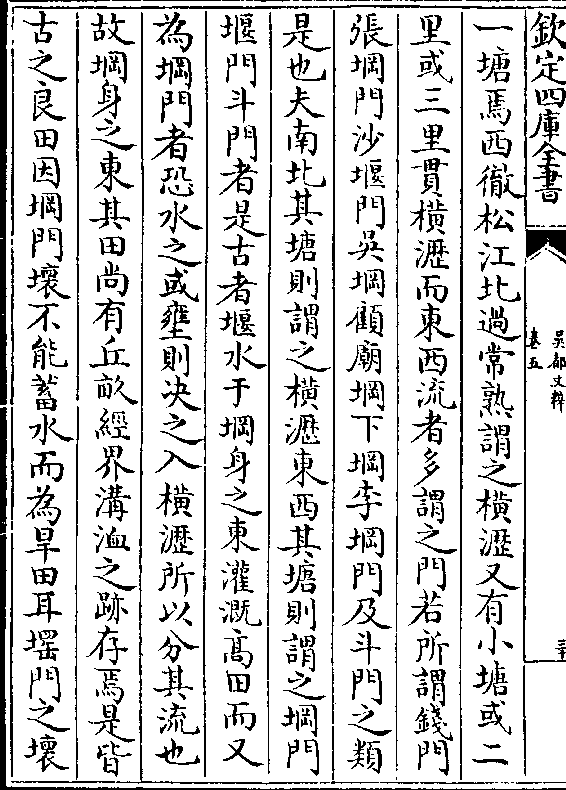 欽定四庫全書
吳都文粹
卷五
三十
一塘焉西徹松江北過常熟謂之橫瀝又有小塘或二
里或三里貫橫瀝而東西流者多謂之門若所謂錢門
張堈門沙堰門吳堈顧廟堈下堈李堈門及斗門之類
是也夫南北其塘則謂之橫瀝東西其塘則謂之堈門
堰門斗門者是古者堰水于堈身之東灌溉高田而又
為堈門者恐水之或壅則决之入橫瀝所以分其流也
故堈身之東其田尚有丘畝經界溝洫之跡存焉是皆
古之良田因堈門壞不能蓄水而為旱田耳堈門之壞